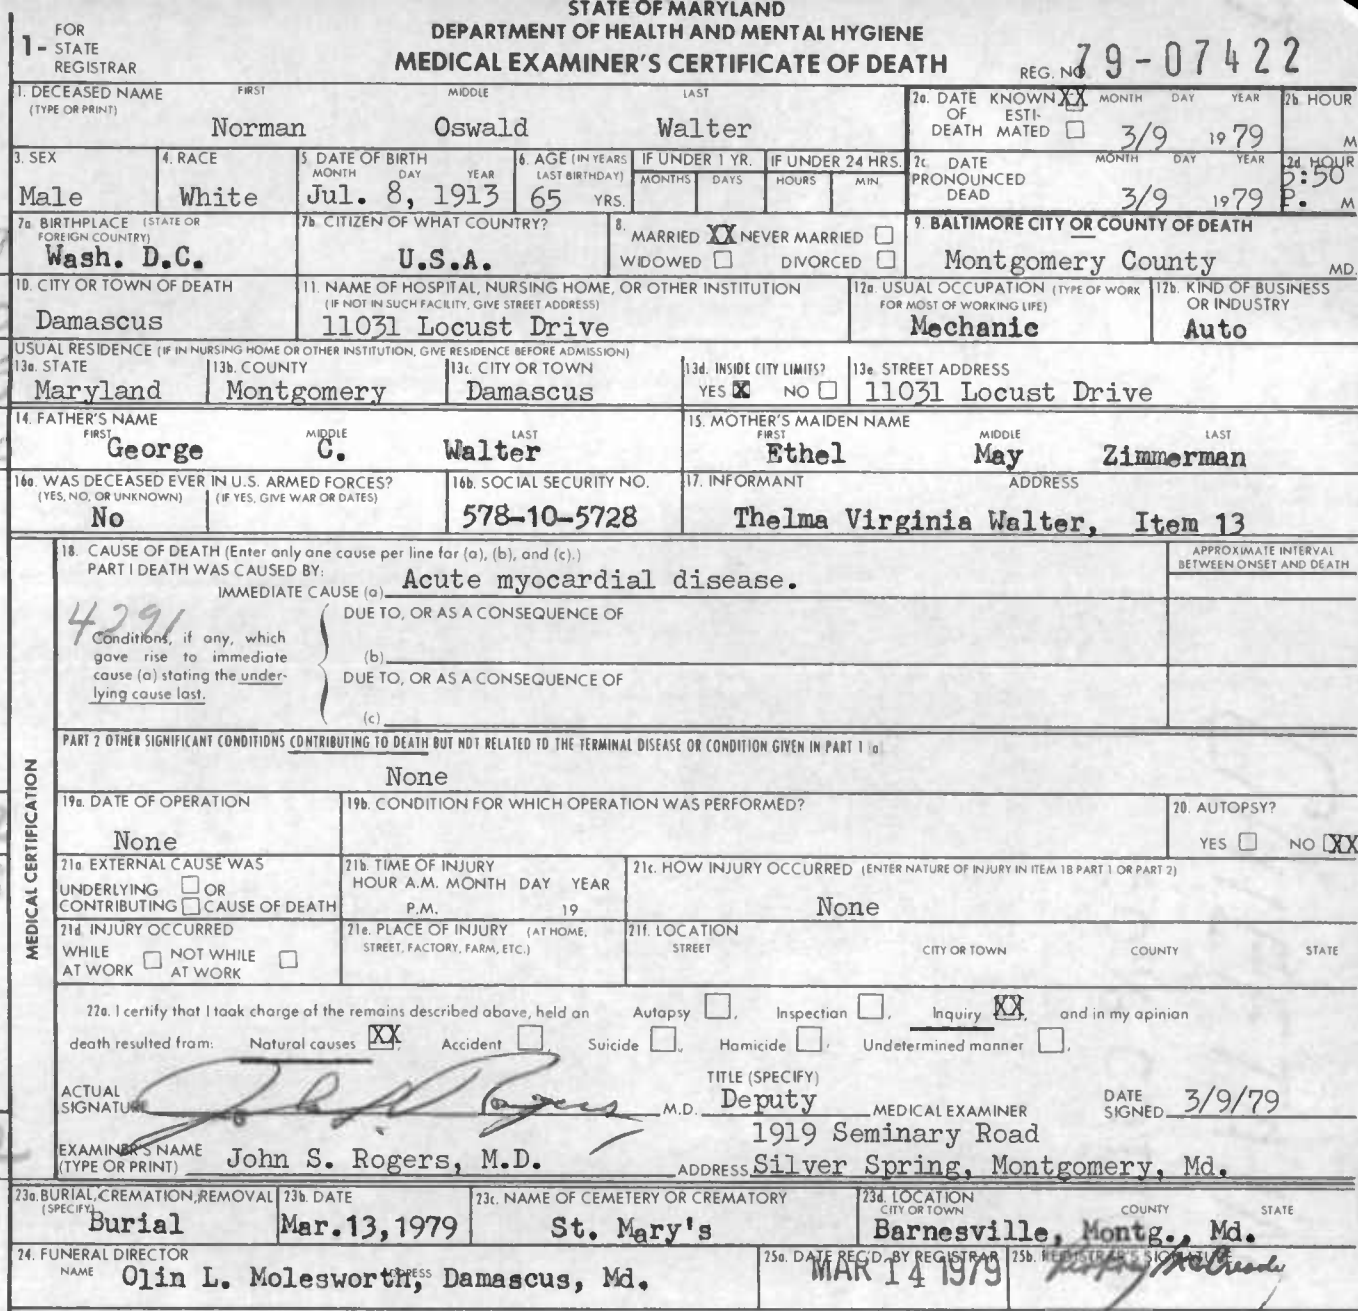 STATE OF MARYLAND
DEPARTMENT OF HEALTH AND MENTAL HYGIENE
MEDICAL EXAMINER'S CERTIFICATE OF DEATH
1- FOR STATE REGISTRAR
REG. NO. 79-07422
1. DECEASED NAME (TYPE OR PRINT) FIRST MIDDLE LAST
Norman Oswald Walter
2a. DATE OF DEATH KNOWN XX ESTIMATED MONTH DAY YEAR
3/9 1979
2b. HOUR M
3. SEX
Male
4. RACE
White
5. DATE OF BIRTH MONTH DAY YEAR
Jul. 8, 1913
6. AGE (IN YEARS LAST BIRTHDAY)
65 YRS.
IF UNDER 1 YR. MONTHS DAYS
IF UNDER 24 HRS. HOURS MIN
2c. DATE PRONOUNCED DEAD MONTH DAY YEAR
3/9 1979
2d. HOUR
5:50 P. M
7a. BIRTHPLACE (STATE OR FOREIGN COUNTRY)
Wash. D.C.
7b. CITIZEN OF WHAT COUNTRY?
U.S.A.
8. MARRIED XX NEVER MARRIED
WIDOWED DIVORCED
9. BALTIMORE CITY OR COUNTY OF DEATH
Montgomery County MD.
10. CITY OR TOWN OF DEATH
Damascus
11. NAME OF HOSPITAL, NURSING HOME, OR OTHER INSTITUTION
(IF NOT IN SUCH FACILITY, GIVE STREET ADDRESS)
11031 Locust Drive
12a. USUAL OCCUPATION (TYPE OF WORK FOR MOST OF WORKING LIFE)
Mechanic
12b. KIND OF BUSINESS OR INDUSTRY
Auto
USUAL RESIDENCE (IF IN NURSING HOME OR OTHER INSTITUTION, GIVE RESIDENCE BEFORE ADMISSION)
13a. STATE
Maryland
13b. COUNTY
Montgomery
13c. CITY OR TOWN
Damascus
13d. INSIDE CITY LIMITS?
YES X NO
13e. STREET ADDRESS
11031 Locust Drive
14. FATHER'S NAME FIRST MIDDLE LAST
George C. Walter
15. MOTHER'S MAIDEN NAME FIRST MIDDLE LAST
Ethel May Zimmerman
16a. WAS DECEASED EVER IN U.S. ARMED FORCES?
(YES, NO, OR UNKNOWN) (IF YES, GIVE WAR OR DATES)
No
16b. SOCIAL SECURITY NO.
578-10-5728
17. INFORMANT ADDRESS
Thelma Virginia Walter, Item 13
MEDICAL CERTIFICATION
18. CAUSE OF DEATH (Enter only one cause per line for (a), (b), and (c).)
PART I DEATH WAS CAUSED BY:
IMMEDIATE CAUSE (a) Acute myocardial disease.
APPROXIMATE INTERVAL BETWEEN ONSET AND DEATH
4291
Conditions, if any, which gave rise to immediate cause (a) stating the underlying cause last.
DUE TO, OR AS A CONSEQUENCE OF
(b)
DUE TO, OR AS A CONSEQUENCE OF
(c)
PART 2 OTHER SIGNIFICANT CONDITIONS CONTRIBUTING TO DEATH BUT NOT RELATED TO THE TERMINAL DISEASE OR CONDITION GIVEN IN PART 1 (a)
None
19a. DATE OF OPERATION
None
19b. CONDITION FOR WHICH OPERATION WAS PERFORMED?
20. AUTOPSY?
YES NO XX
21a. EXTERNAL CAUSE WAS
UNDERLYING OR
CONTRIBUTING CAUSE OF DEATH
21b. TIME OF INJURY
HOUR A.M. MONTH DAY YEAR
P.M. 19
21c. HOW INJURY OCCURRED (ENTER NATURE OF INJURY IN ITEM 18 PART 1 OR PART 2)
None
21d. INJURY OCCURRED
WHILE AT WORK NOT WHILE AT WORK
21e. PLACE OF INJURY (AT HOME, STREET, FACTORY, FARM, ETC.)
21f. LOCATION
STREET CITY OR TOWN COUNTY STATE
22a. I certify that I took charge of the remains described above, held an Autopsy , Inspection , Inquiry XX, and in my opinion
death resulted from: Natural causes XX, Accident , Suicide , Homicide , Undetermined manner .
ACTUAL SIGNATURE John S. Rogers M.D.
TITLE (SPECIFY)
Deputy MEDICAL EXAMINER
DATE SIGNED 3/9/79
EXAMINER'S NAME (TYPE OR PRINT) John S. Rogers, M.D.
1919 Seminary Road
ADDRESS Silver Spring, Montgomery, Md.
23a. BURIAL, CREMATION, REMOVAL (SPECIFY)
Burial
23b. DATE
Mar.13,1979
23c. NAME OF CEMETERY OR CREMATORY
St. Mary's
23d. LOCATION CITY OR TOWN COUNTY STATE
Barnesville, Montg., Md.
24. FUNERAL DIRECTOR
NAME ADDRESS
Olin L. Molesworth, Damascus, Md.
25a. DATE REC'D. BY REGISTRAR
MAR 14 1979
25b. REGISTRAR'S SIGNATURE